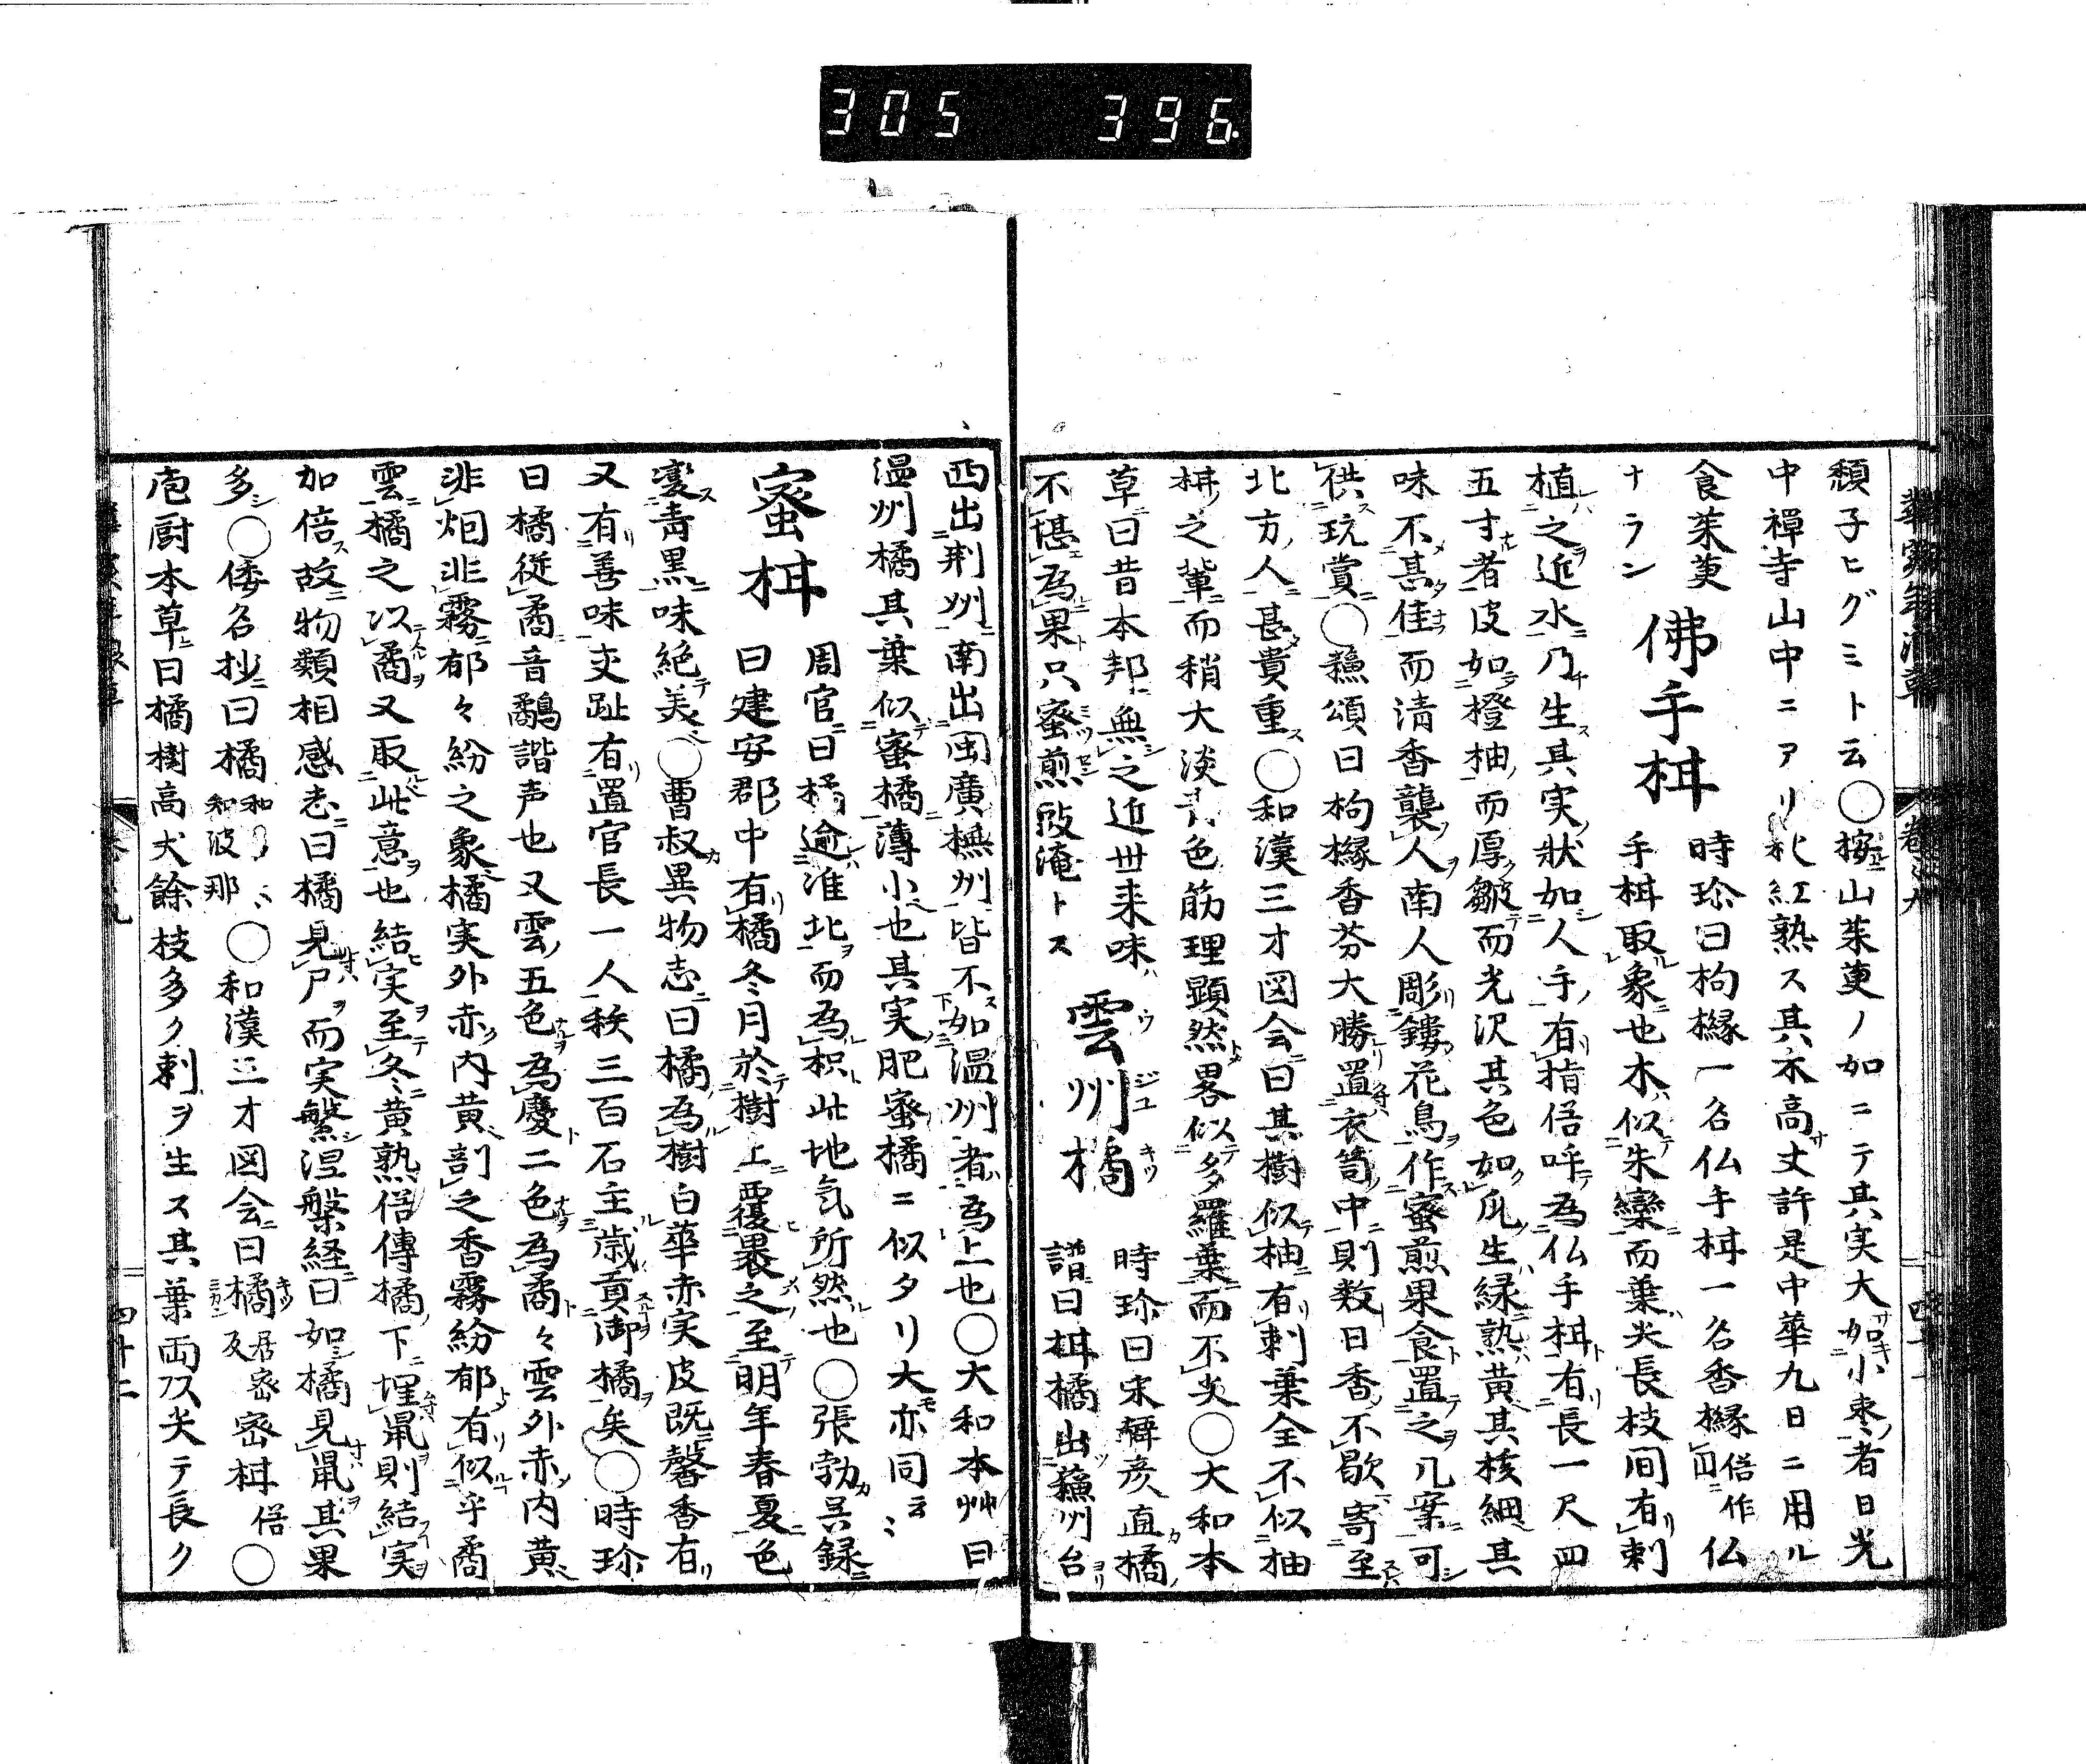 305 396.
頽子ヒグミト云○按山茱萸ノ如ニテ其実大如小棗者日光
中禪寺山中ニアリ秋紅熟ス其木高丈許是中華九日ニ用ル
食茱萸
ナラン
佛手柑
時珍曰枸櫞一名仏手柑一名香櫞俗作仏
手柑取象也木似朱欒而葉尖長枝间有刺
植之近水乃生其実状如人手有指俗呼為仏手柑有長一尺四
五寸者皮如橙柚而厚皺而光沢其色如瓜生緑熟黄其核細其
味不甚佳而清香襲人南人彫鏤花鳥作蜜煎果食置之几案可
供玩賞○蘓頌曰枸櫞香芬大勝置衣笥中則数日香不歇寄至
北方人甚貴重○和漢三才図会曰其樹似柚有刺葉全不似柚
柑之葉而稍大淡色筋理顕然畧似多羅葉而不尖○大和本
草曰昔本邦無之近世来味
不堪為果只蜜煎豉淹トス
雲州橘
ウジユキツ
時珍曰宋韓彦直橘
譜曰柑橘出蘓州台
西出荆州南出闽廣橅州皆不如温州者為上也○大和本艸曰
温州橘其葉似蜜橘薄小也其実肥蜜橘ニ似タリ大亦同云〻
蜜柑
周官曰橘逾淮北而為枳此地気所然也○張勃吴録
曰建安郡中有橘冬月於樹上覆裹之至明年春夏色
変青黒味絶美○曹叔異物志曰橘為樹白華赤実皮既馨香有
又有善味交趾有置官長一人秩三百石主歳貢御橘矣○時珍
曰橘従矞音鷸諧声也又雲五色為慶二色為矞々雲外赤内黄
非烟非霧郁々紛之象橘実外赤内黄剖之香霧紛郁有似乎矞
雲橘之以矞又取此意也結実至冬黄熟俗傳橘下埋鼠則結実
加倍故物類相感志曰橘見尸而実繁涅槃経曰如橘見鼠其果
多○倭名抄曰橘和波那〻○和漢三才図会曰橘キツ居密及ミカン密柑俗○
庖厨本草曰橘樹高丈餘枝多ク刺ヲ生ス其葉両头尖テ長ク
四十二